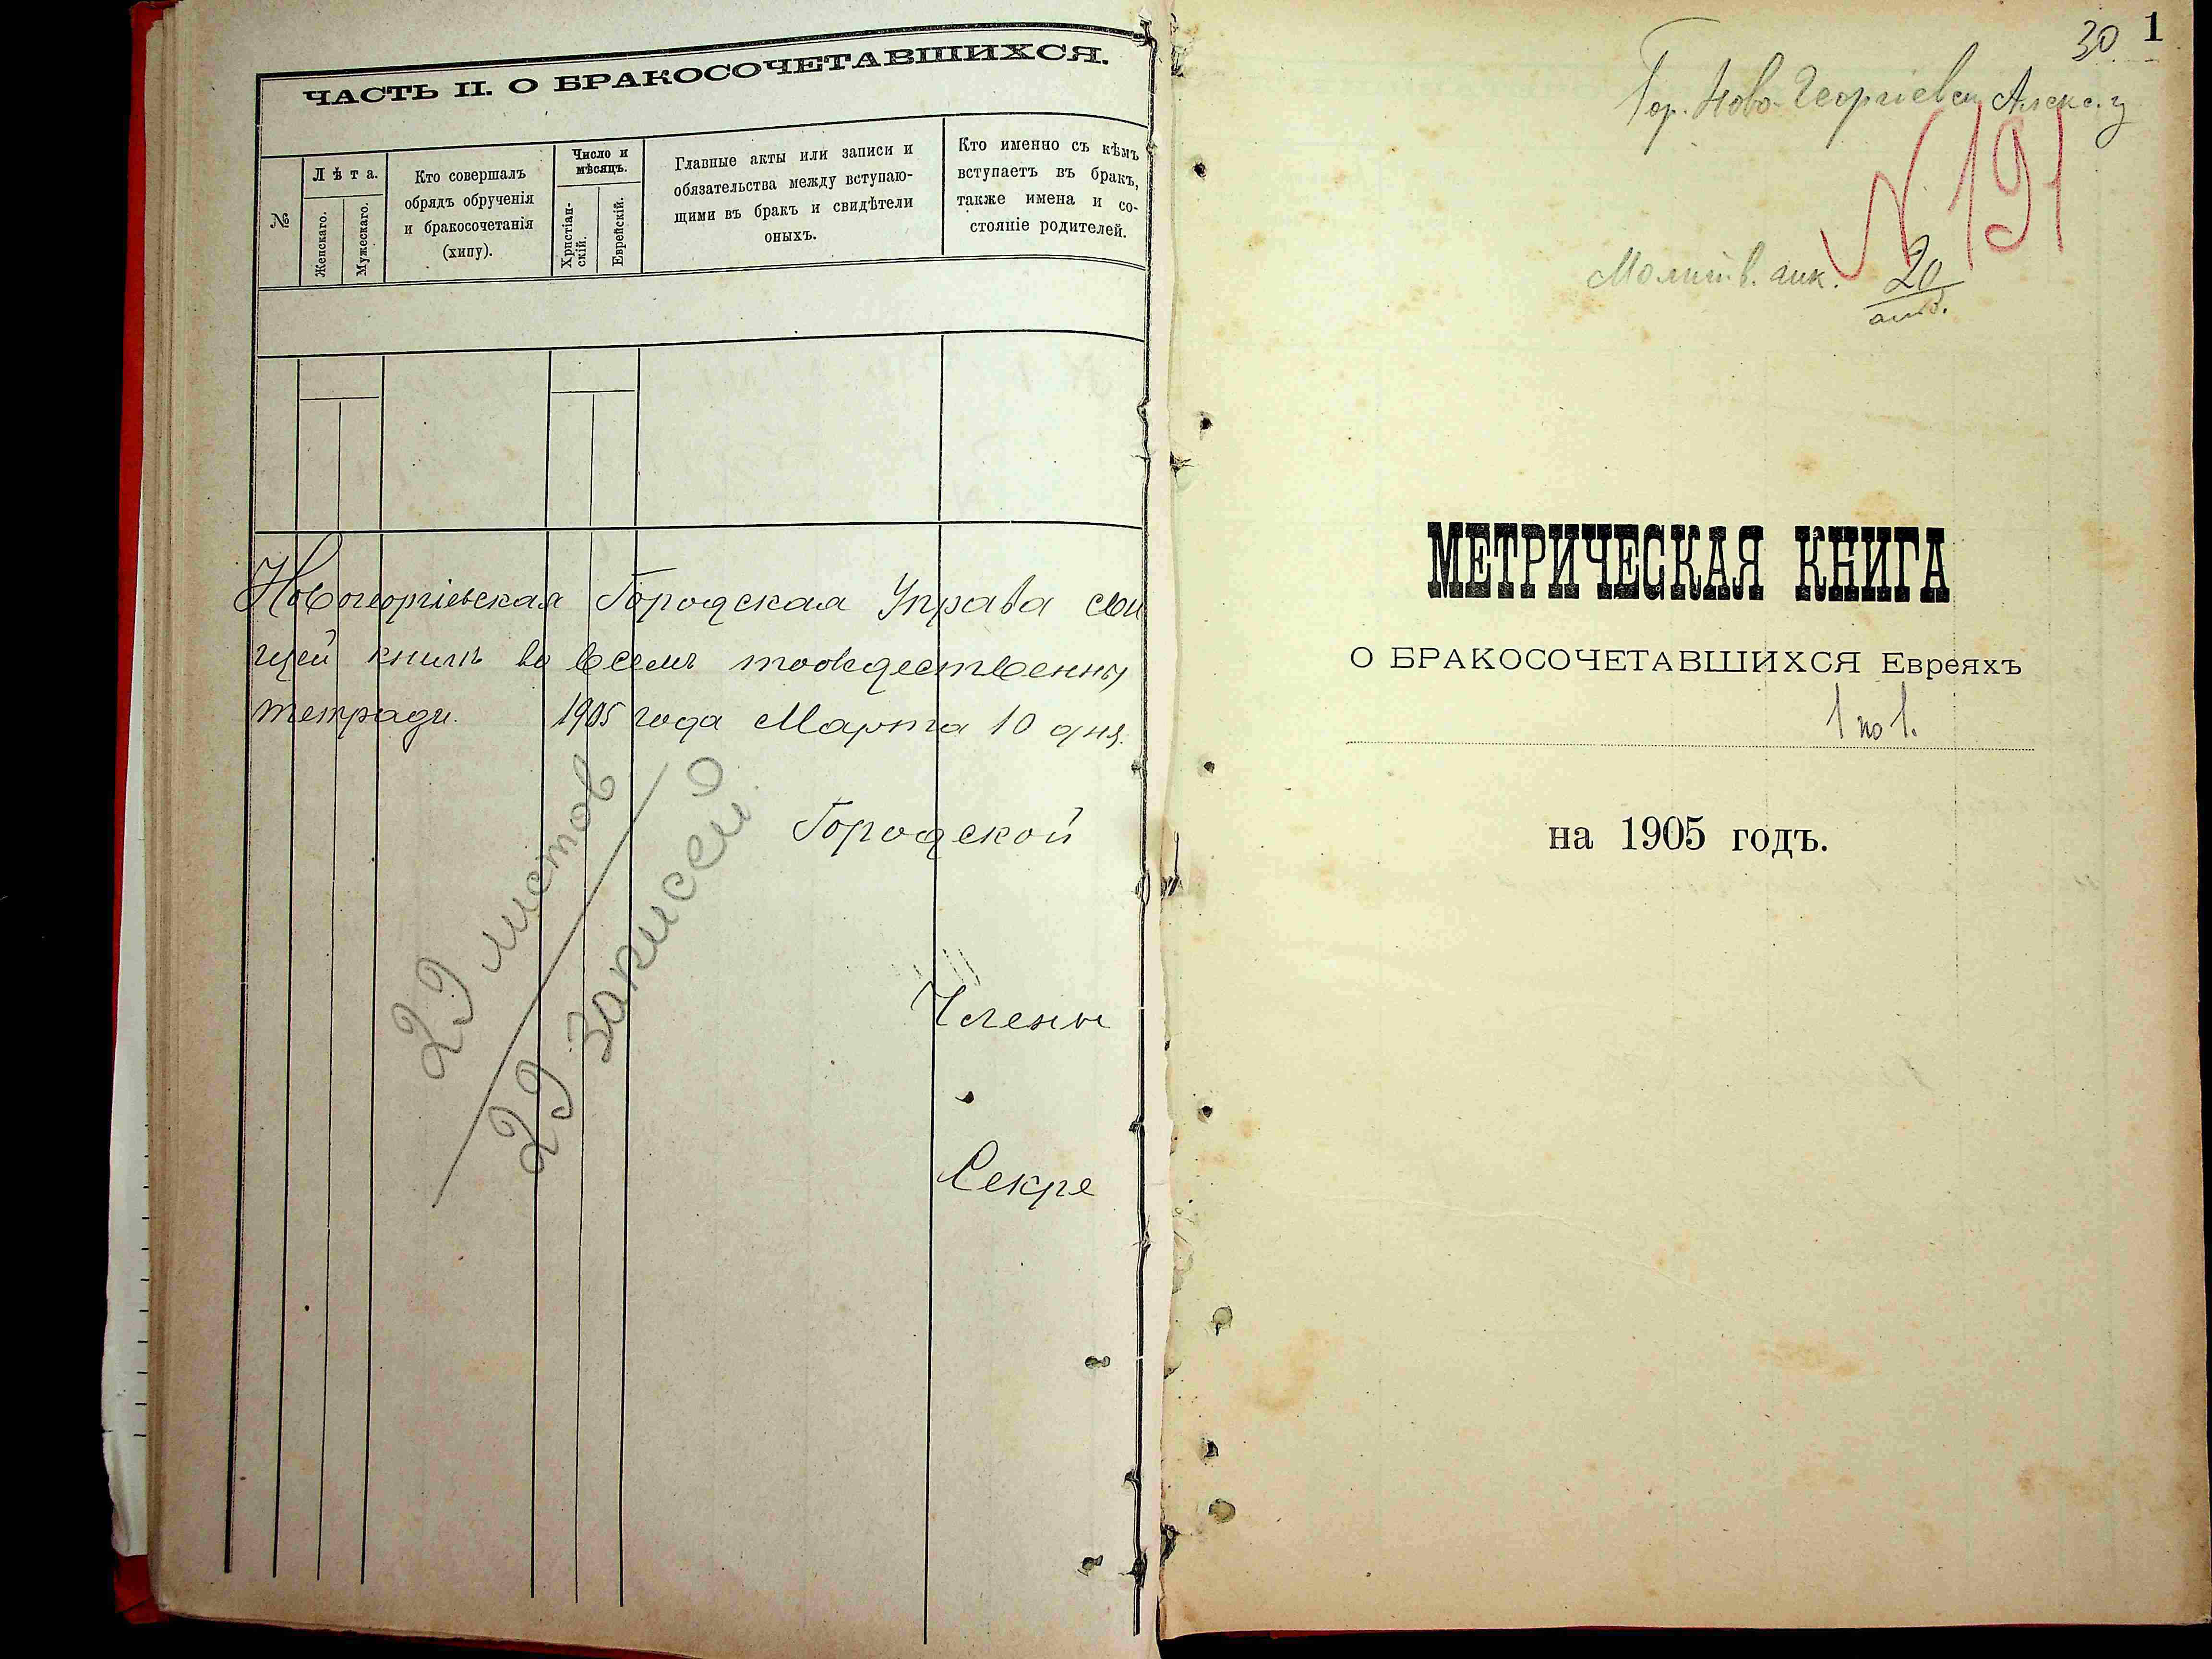 ЧАСТЬ II. О БРАКОСОЧЕТАВШИХСЯ.
№
Лѣта.
Женскаго.
Мужескаго.
Кто совершалъ
обрядъ обрученія
и бракосочетанія
(хипу).
Число и
мѣсяцъ.
Христіан-
скій.
Еврейскій.
Главные акты или записи и
обязательства между вступаю-
щими въ бракъ и свидѣтели
оныхъ.
Кто именно съ кѣмъ
вступаетъ въ бракъ,
также имена и со-
стояніе родителей.
Новогеоргіевская Городская Управа сви
щей книги во всемъ тождественны
тетради. 1905 года Марта 10 дня.
Городской
29 листов
29 записей
Члены
Секре
30 1
Гор. Ново-Георгіевск Алекс. у
N 191
Молитв. 20
МЕТРИЧЕСКАЯ КНИГА
О БРАКОСОЧЕТАВШИХСЯ Евреяхъ
1 по 1.
на 1905 годъ.